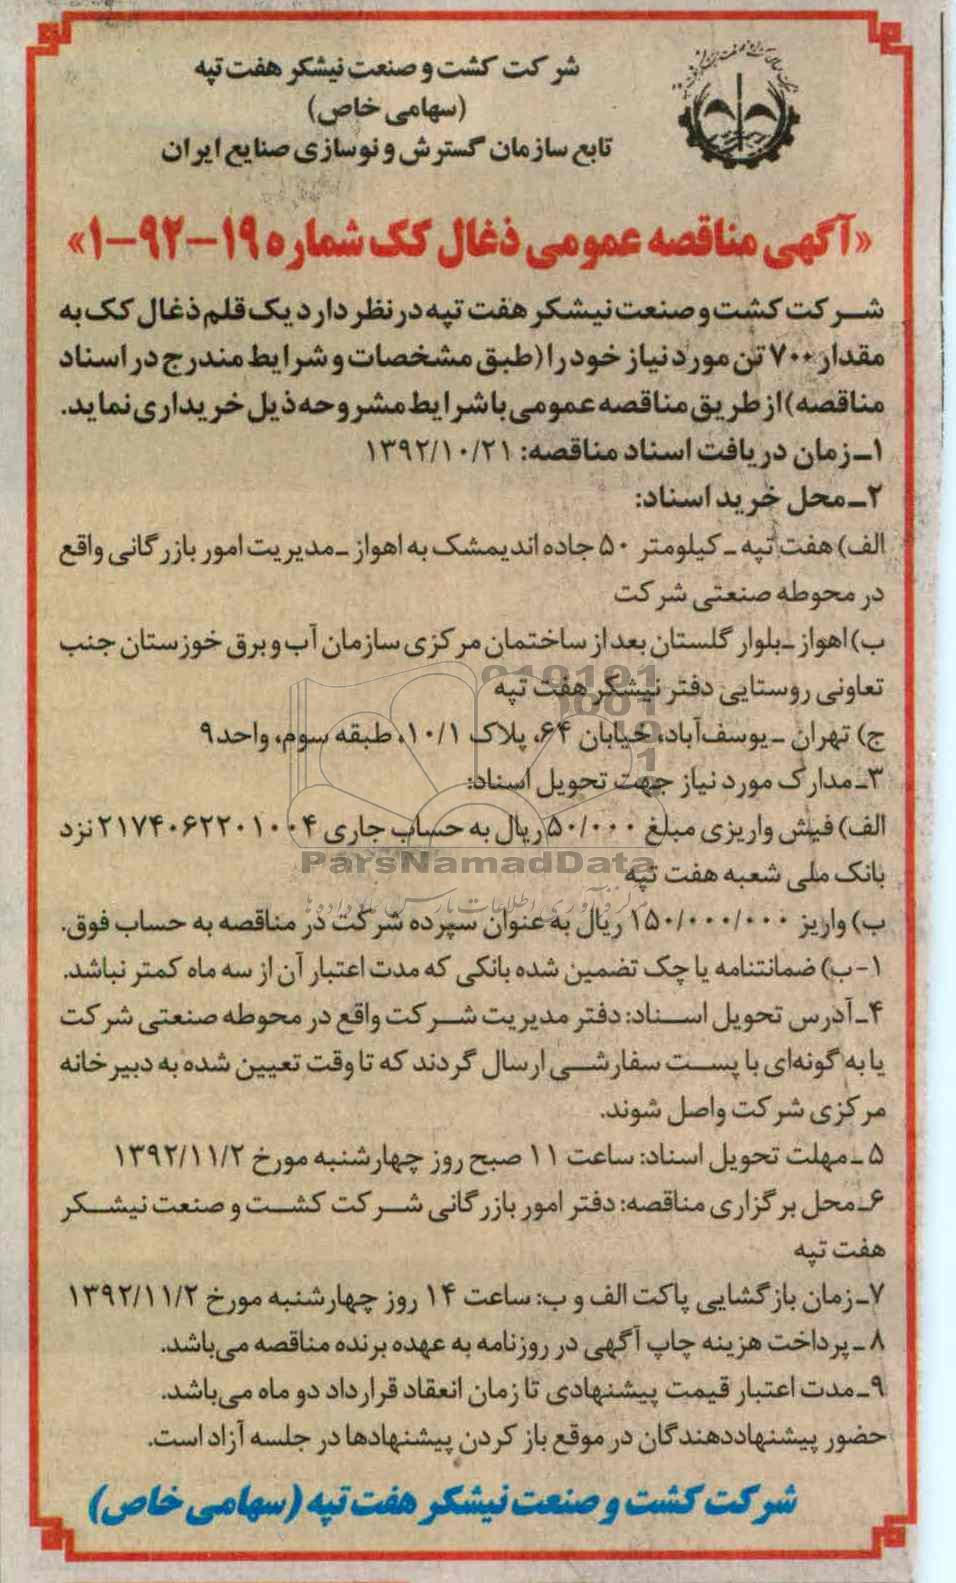 شرکت کشت و صنعت نیشکر هفت تپه
(سهامی خاص)
تابع سازمان گسترش و نوسازی صنایع ایران
«آگهی مناقصه عمومی ذغال کک شماره ۱۹-۹۲-۱»
شرکت کشت و صنعت نیشکر هفت تپه در نظر دارد یک قلم ذغال کک به
مقدار ۷۰۰ تن مورد نیاز خود را (طبق مشخصات و شرایط مندرج در اسناد
مناقصه) از طریق مناقصه عمومی با شرایط مشروحه ذیل خریداری نماید.
۱ـ زمان دریافت اسناد مناقصه: ۱۳۹۲/۱۰/۲۱
۲ـ محل خرید اسناد:
الف) هفت تپه ـ کیلومتر ۵۰ جاده اندیمشک به اهواز ـ مدیریت امور بازرگانی واقع
در محوطه صنعتی شرکت
ب) اهواز ـ بلوار گلستان بعد از ساختمان مرکزی سازمان آب و برق خوزستان جنب
تعاونی روستایی دفتر نیشکر هفت تپه
ج) تهران ـ یوسف‌آباد، خیابان ۶۴، پلاک ۱۰/۱، طبقه سوم، واحد ۹
۳ـ مدارک مورد نیاز جهت تحویل اسناد:
الف) فیش واریزی مبلغ ۵۰/۰۰۰ ریال به حساب جاری ۲۱۷۴۰۶۲۲۰۱۰۰۴ نزد
بانک ملی شعبه هفت تپه
ParsNamadData
ب) واریز ۱۵۰/۰۰۰/۰۰۰ ریال به عنوان سپرده شرکت در مناقصه به حساب فوق.
۱-ب) ضمانتنامه یا چک تضمین شده بانکی که مدت اعتبار آن از سه ماه کمتر نباشد.
۴ـ آدرس تحویل اسناد: دفتر مدیریت شرکت واقع در محوطه صنعتی شرکت
یا به گونه‌ای با پست سفارشی ارسال گردند که تا وقت تعیین شده به دبیرخانه
مرکزی شرکت واصل شوند.
۵ ـ مهلت تحویل اسناد: ساعت ۱۱ صبح روز چهارشنبه مورخ ۱۳۹۲/۱۱/۲
۶ـ محل برگزاری مناقصه: دفتر امور بازرگانی شرکت کشت و صنعت نیشکر
هفت تپه
۷ـ زمان بازگشایی پاکت الف و ب: ساعت ۱۴ روز چهارشنبه مورخ ۱۳۹۲/۱۱/۲
۸ ـ پرداخت هزینه چاپ آگهی در روزنامه به عهده برنده مناقصه می‌باشد.
۹ـ مدت اعتبار قیمت پیشنهادی تا زمان انعقاد قرارداد دو ماه می‌باشد.
حضور پیشنهاددهندگان در موقع باز کردن پیشنهادها در جلسه آزاد است.
شرکت کشت و صنعت نیشکر هفت تپه (سهامی خاص)